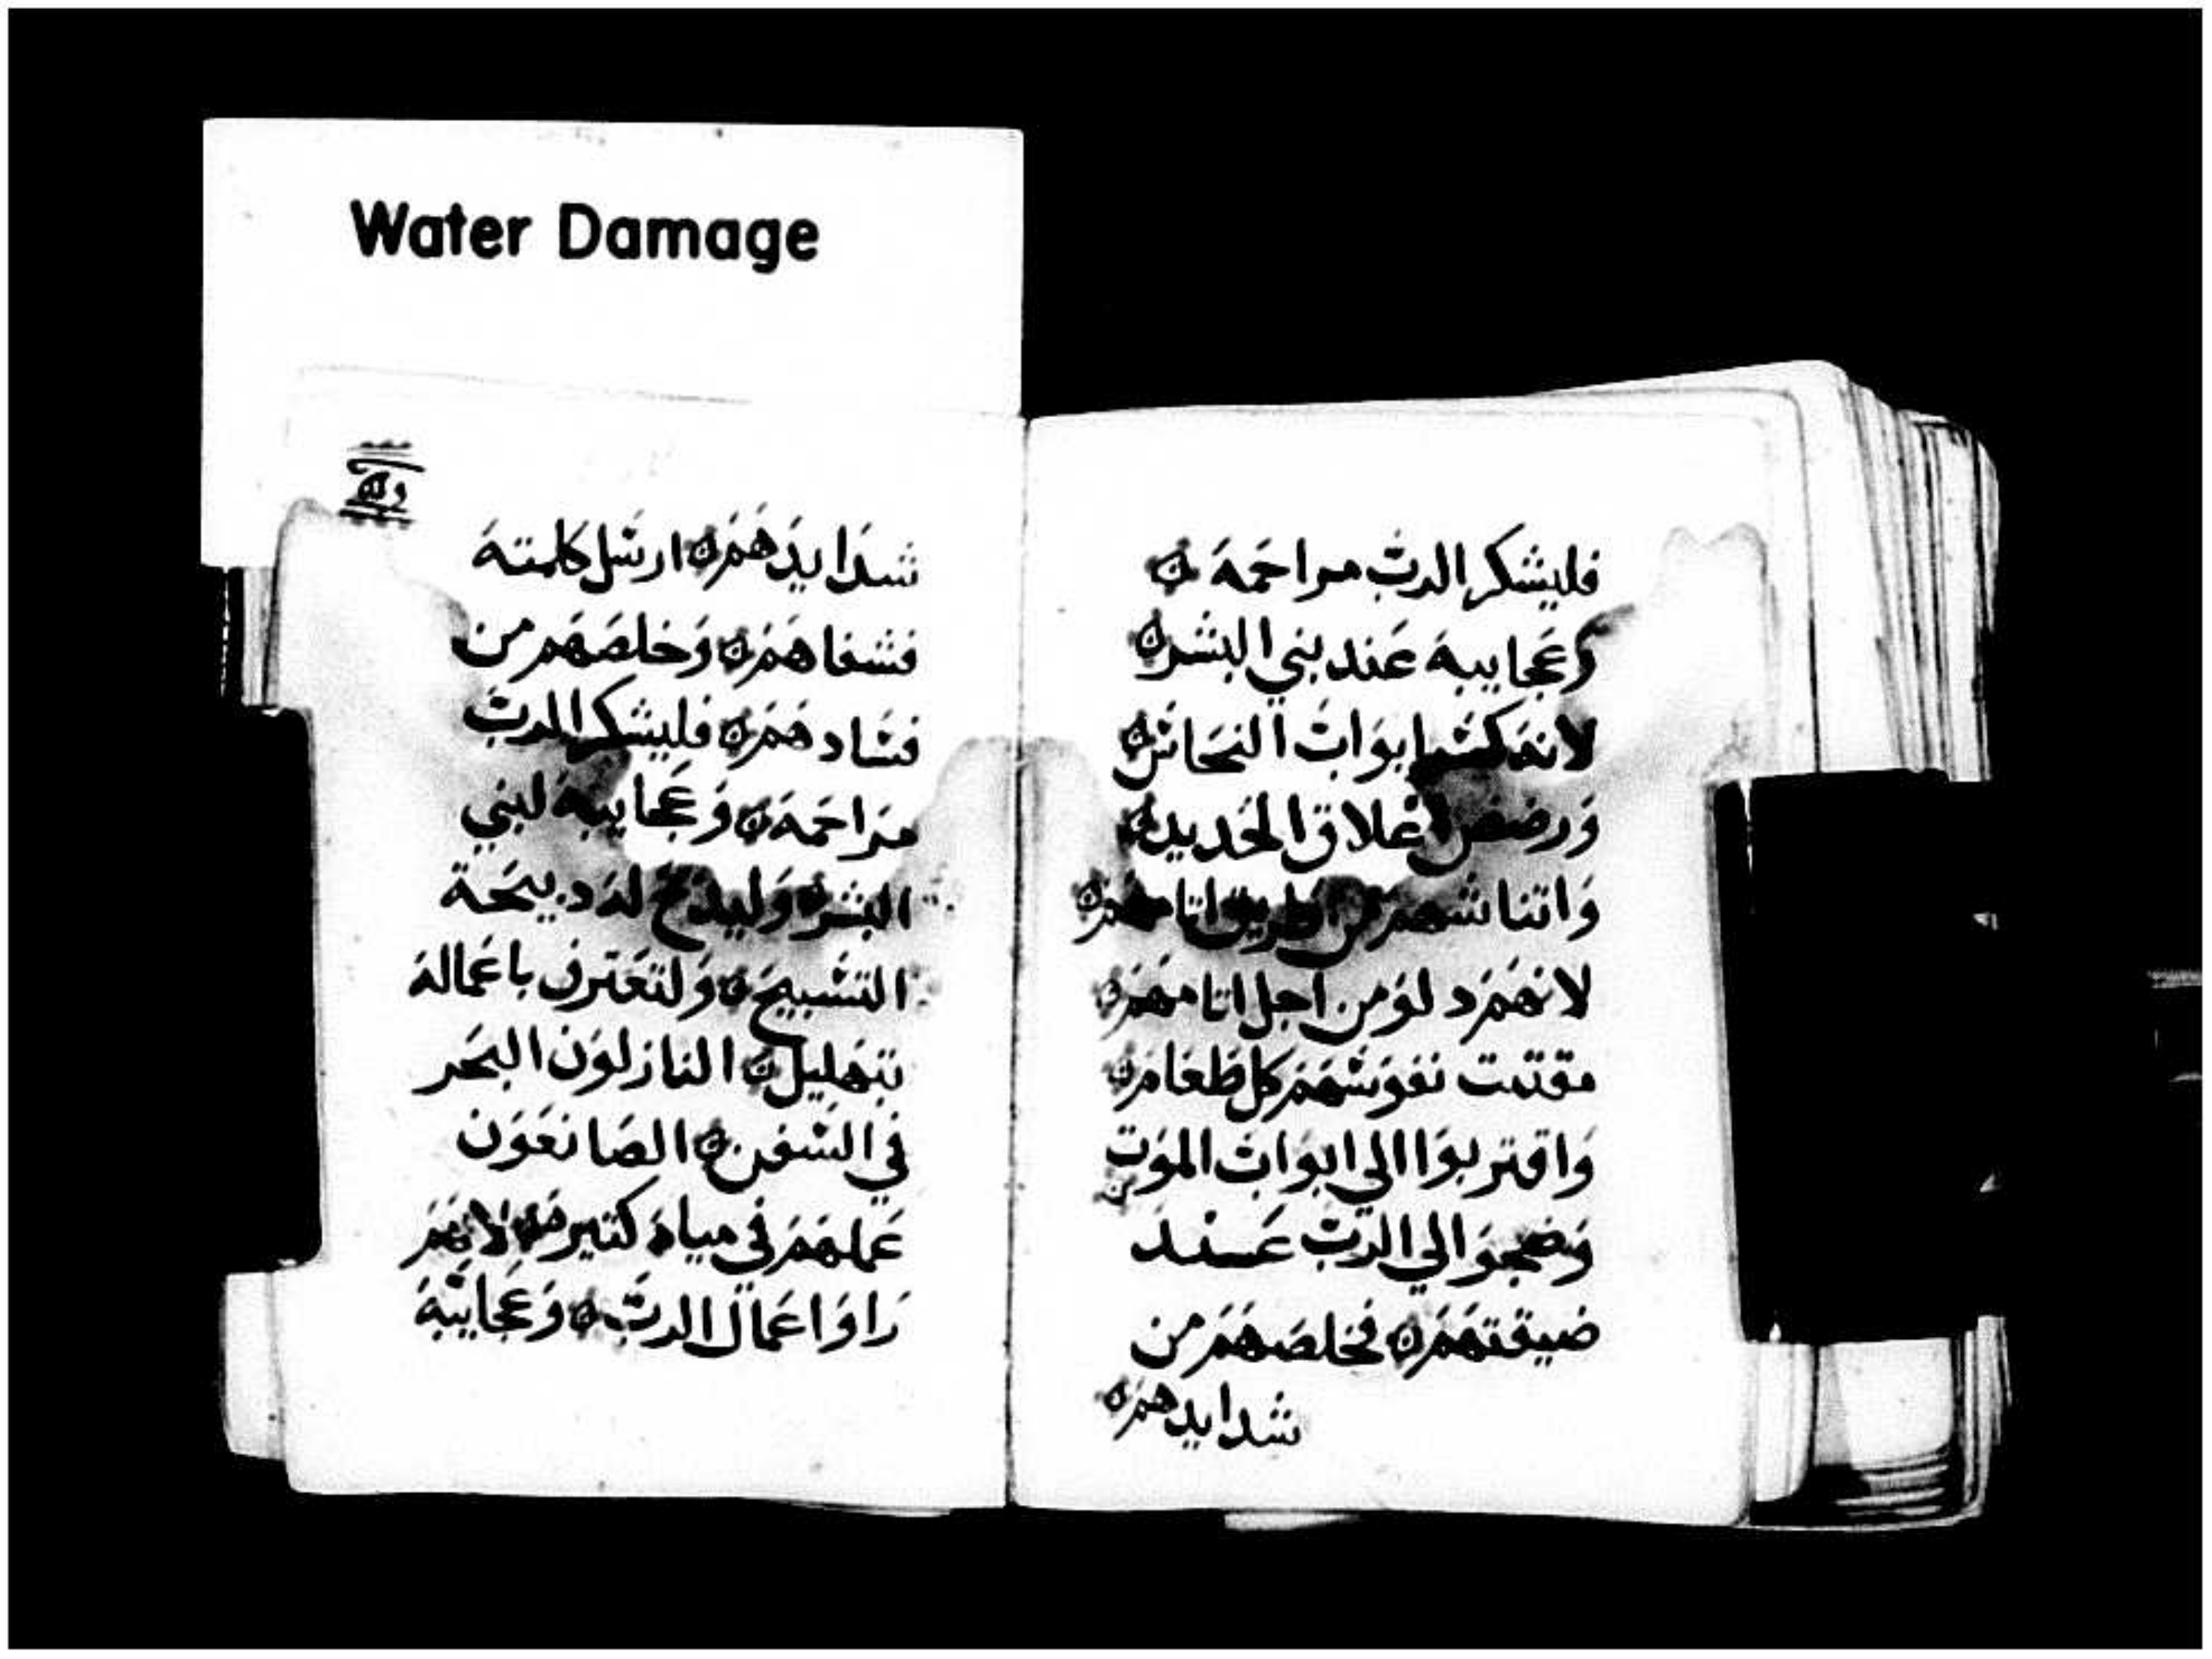 Water Damage
فليشكر الرب مراحمه
وعجايبه عند بني البشر
لانه كسر ابواب النحاس
ورضض اغلاق الحديد
واتناشهم من طريق اتامهم
لانهم دلو من اجل اتامهم
مقتت نفوسهم كل طعام
واقتربوا الي ابواب الموت
وضجوا الي الرب عند
ضيقتهم فخلصهم من
شدايدهم
شدايدهم ارسل كلمته
فشفاهم وخلصهم من
فسادهم فليشكر الرب
مراحمه وعجايبه لبني
البشر وليدبح له دبيحة
التسبيح ولتعترف باعماله
بتهليل النازلون البحر
في السفن الصانعون
عملهم في مياه كتيره لانهم
راوا اعمال الرب وعجايبه